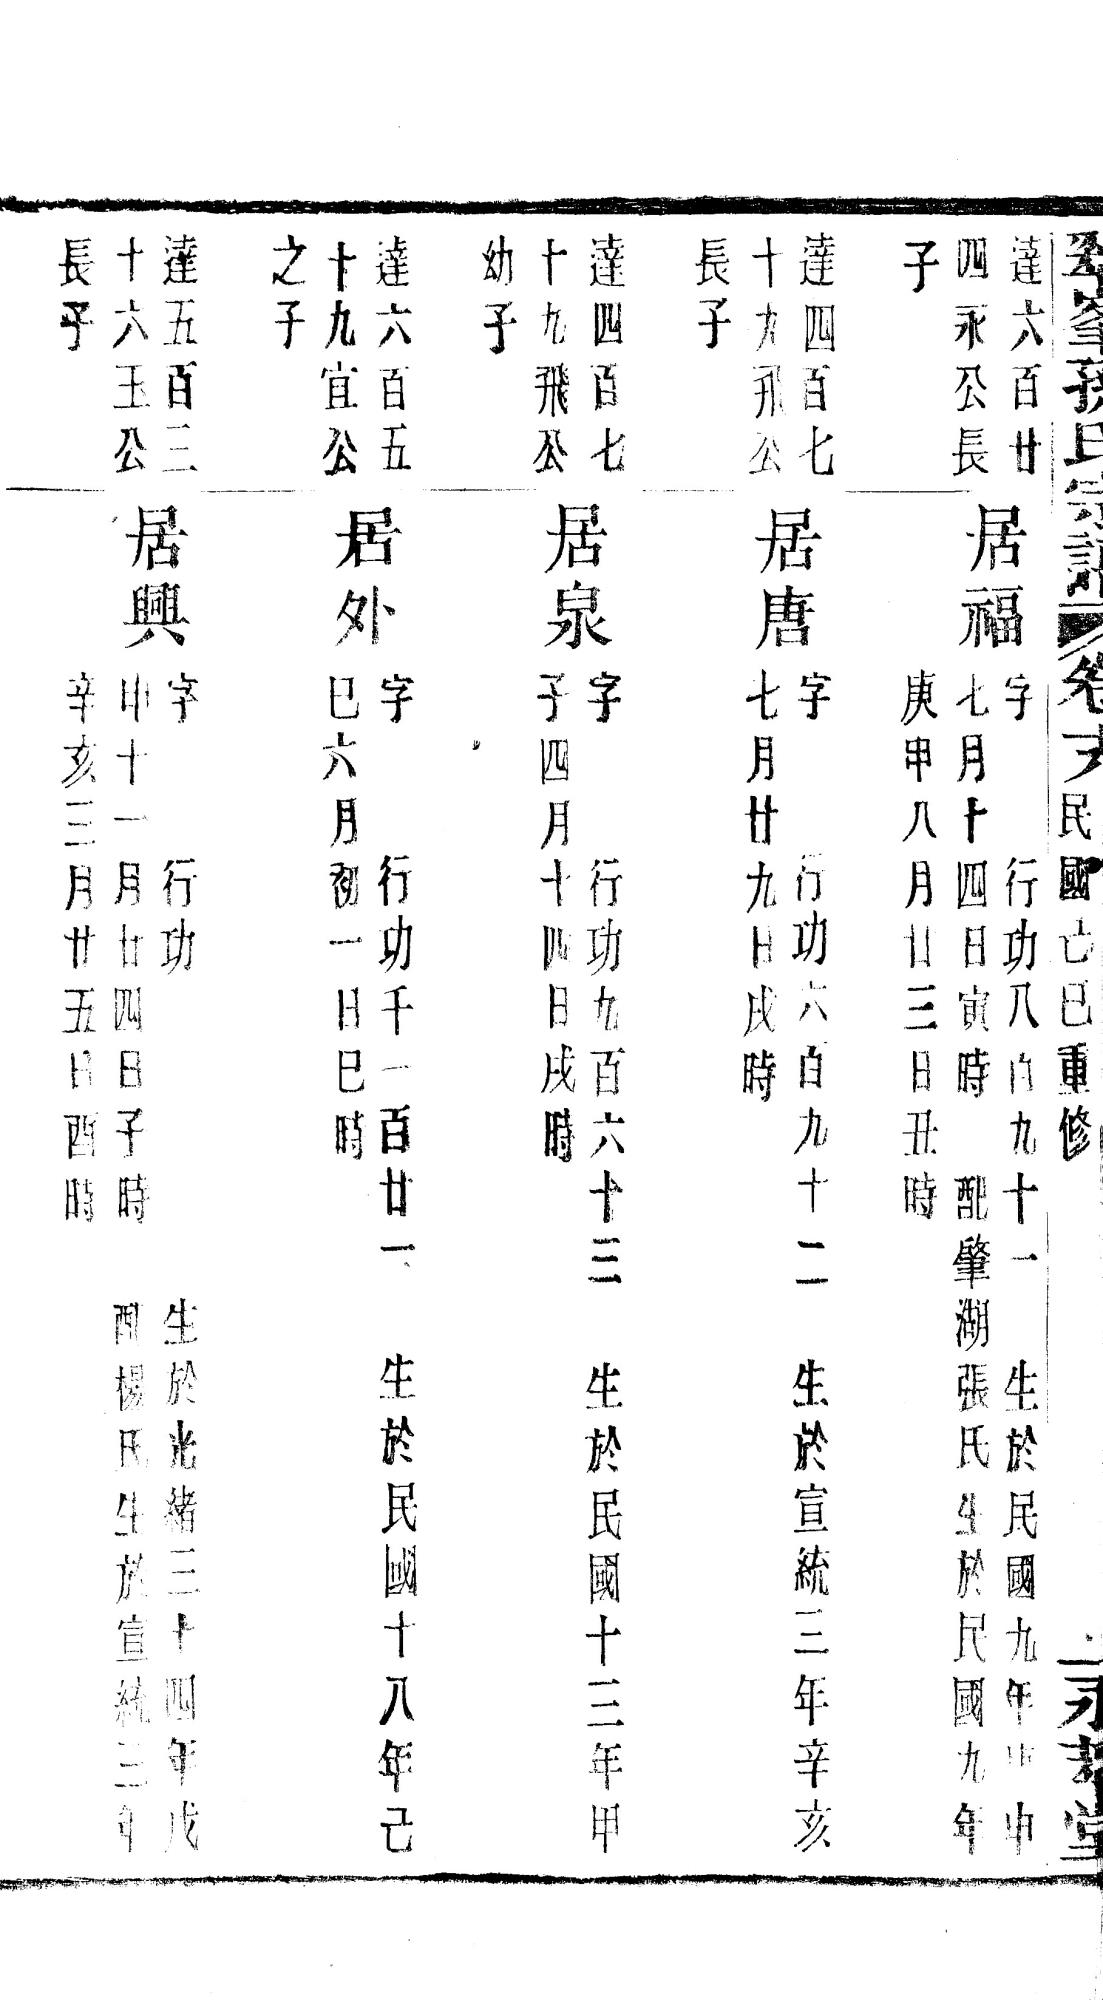 孫氏宗譜 卷 民國己巳重修 一 永 堂
達六百廿
四永公長
子
居福
字 行功八百九十一 生於民國九年庚申
七月十四日寅時 配肇湖張氏生於民國九年
庚申八月廿三日丑時
達四百七
十九飛公
長子
居唐
字 行功六百九十二 生於宣統三年辛亥
七月廿九日戌時
達四百七
十九飛公
幼子
居泉
字 行功九百六十三 生於民國十三年甲
子四月十四日戌時
達六百五
十九宜公
之子
居外
字 行功千一百廿一 生於民國十八年己
巳六月初一日巳時
達五百三
十六玉公
長子
居興
字 行功 生於光緒三十四年戊
申十一月廿四日子時 配楊氏生於宣統三年
辛亥三月廿五日酉時